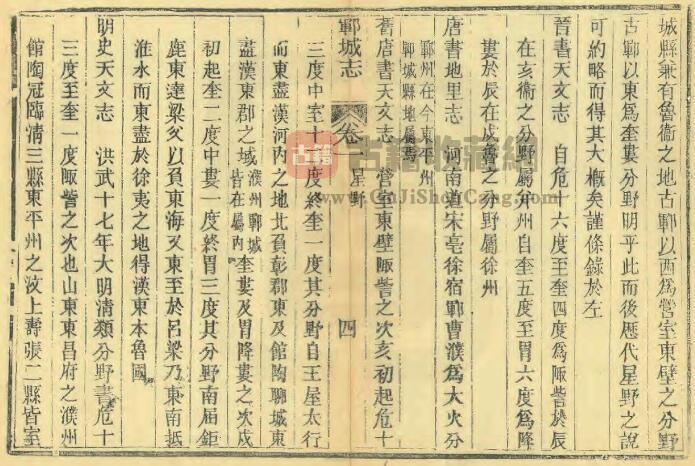 城縣兼有魯衞之地古鄆以西爲營室東壁之分野
古鄆以東爲奎婁分野明乎此而後歷代星野之說
可約略而得其大槪矣謹條錄於左
晉書天文志　自危十六度至奎四度爲陬訾於辰
在亥衞之分野屬并州自奎五度至胃六度爲降
婁於辰在戌魯之分野屬徐州
唐書地里志　河南道宋亳徐宿鄆曹濮爲大火分
鄆州在今東平州
鄆城縣地屬焉
舊唐書天文志　營室東壁陬訾之次亥初起危十
鄆城志　卷一　星野　四
三度中室十二度終奎一度其分野自王屋太行
而東盡漢河內之地北負彰郡東及館陶聊城東
盡漢東郡之域
濮州鄆城
皆在屬內
奎婁及胃降婁之次戌
初起奎二度中婁一度終胃三度其分野南屆鉅
鹿東達梁父以負東海又東至於呂梁乃東南抵
淮水而東盡於徐夷之地得漢東本魯國
明史天文志　洪武十七年大明清類分野書危十
三度至奎一度陬訾之次也山東東昌府之濮州
館陶冠臨清三縣東平州之汶上壽張二縣皆室
古籍
古籍收藏網
www.GuJiShouCang.com